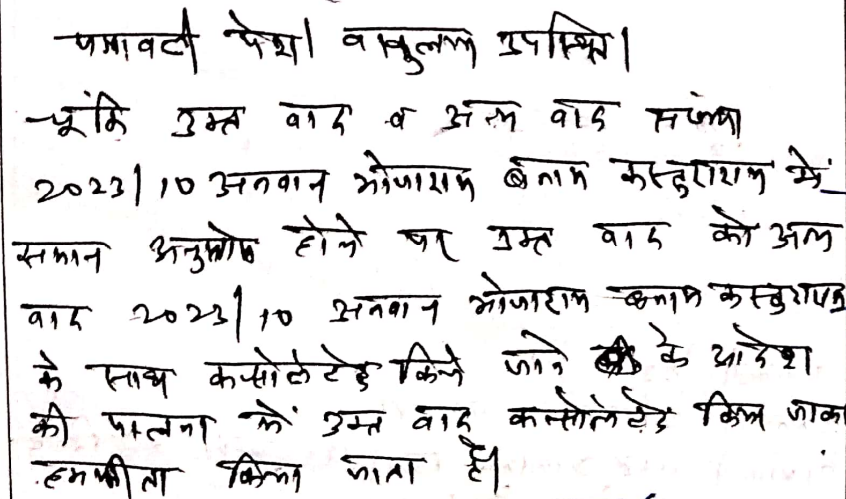 पत्रावली पेश। वकुलाय उपस्थित।
चूंकि उक्त वाद व अन्य वाद संख्या
2023/10 अनवान भोजाराम बनाम कस्तुराराम में
समान अनुतोष होने पर उक्त वाद को अन्य
वाद 2023/10 अनवान भोजाराम बनाम कस्तुराराम
के साथ कन्सोलेटेड किये जाने के आदेश
की पालना में उक्त वाद कन्सोलेटेड किया जाकर
किया जाता है।